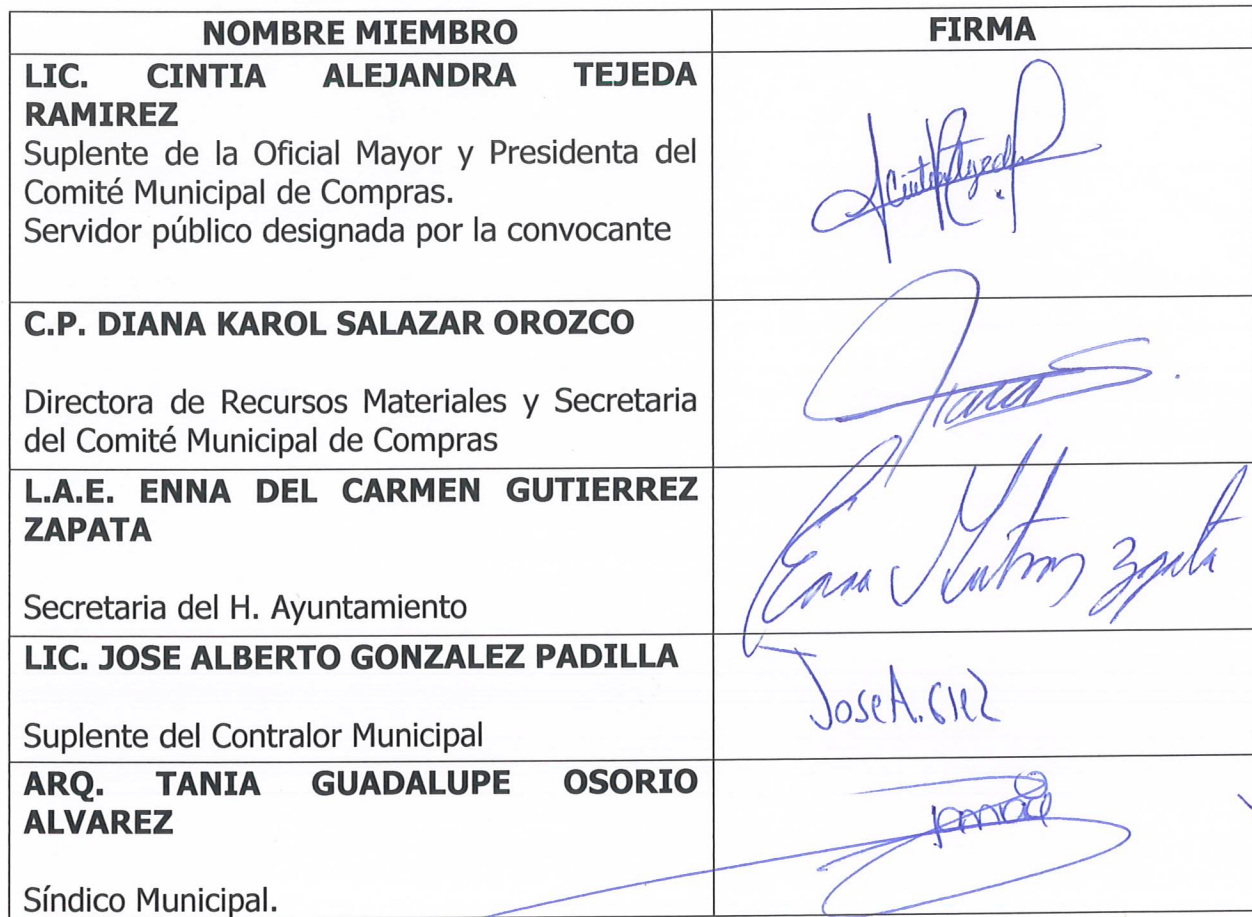 NOMBRE MIEMBRO
FIRMA
LIC. CINTIA ALEJANDRA TEJEDA
RAMIREZ
Suplente de la Oficial Mayor y Presidenta del
Comité Municipal de Compras.
Servidor público designada por la convocante
C.P. DIANA KAROL SALAZAR OROZCO
Directora de Recursos Materiales y Secretaria
del Comité Municipal de Compras
L.A.E. ENNA DEL CARMEN GUTIERREZ
ZAPATA
Secretaria del H. Ayuntamiento
Enna
LIC. JOSE ALBERTO GONZALEZ PADILLA
Suplente del Contralor Municipal
Jose A. Glez
ARQ. TANIA GUADALUPE OSORIO
ALVAREZ
Síndico Municipal.